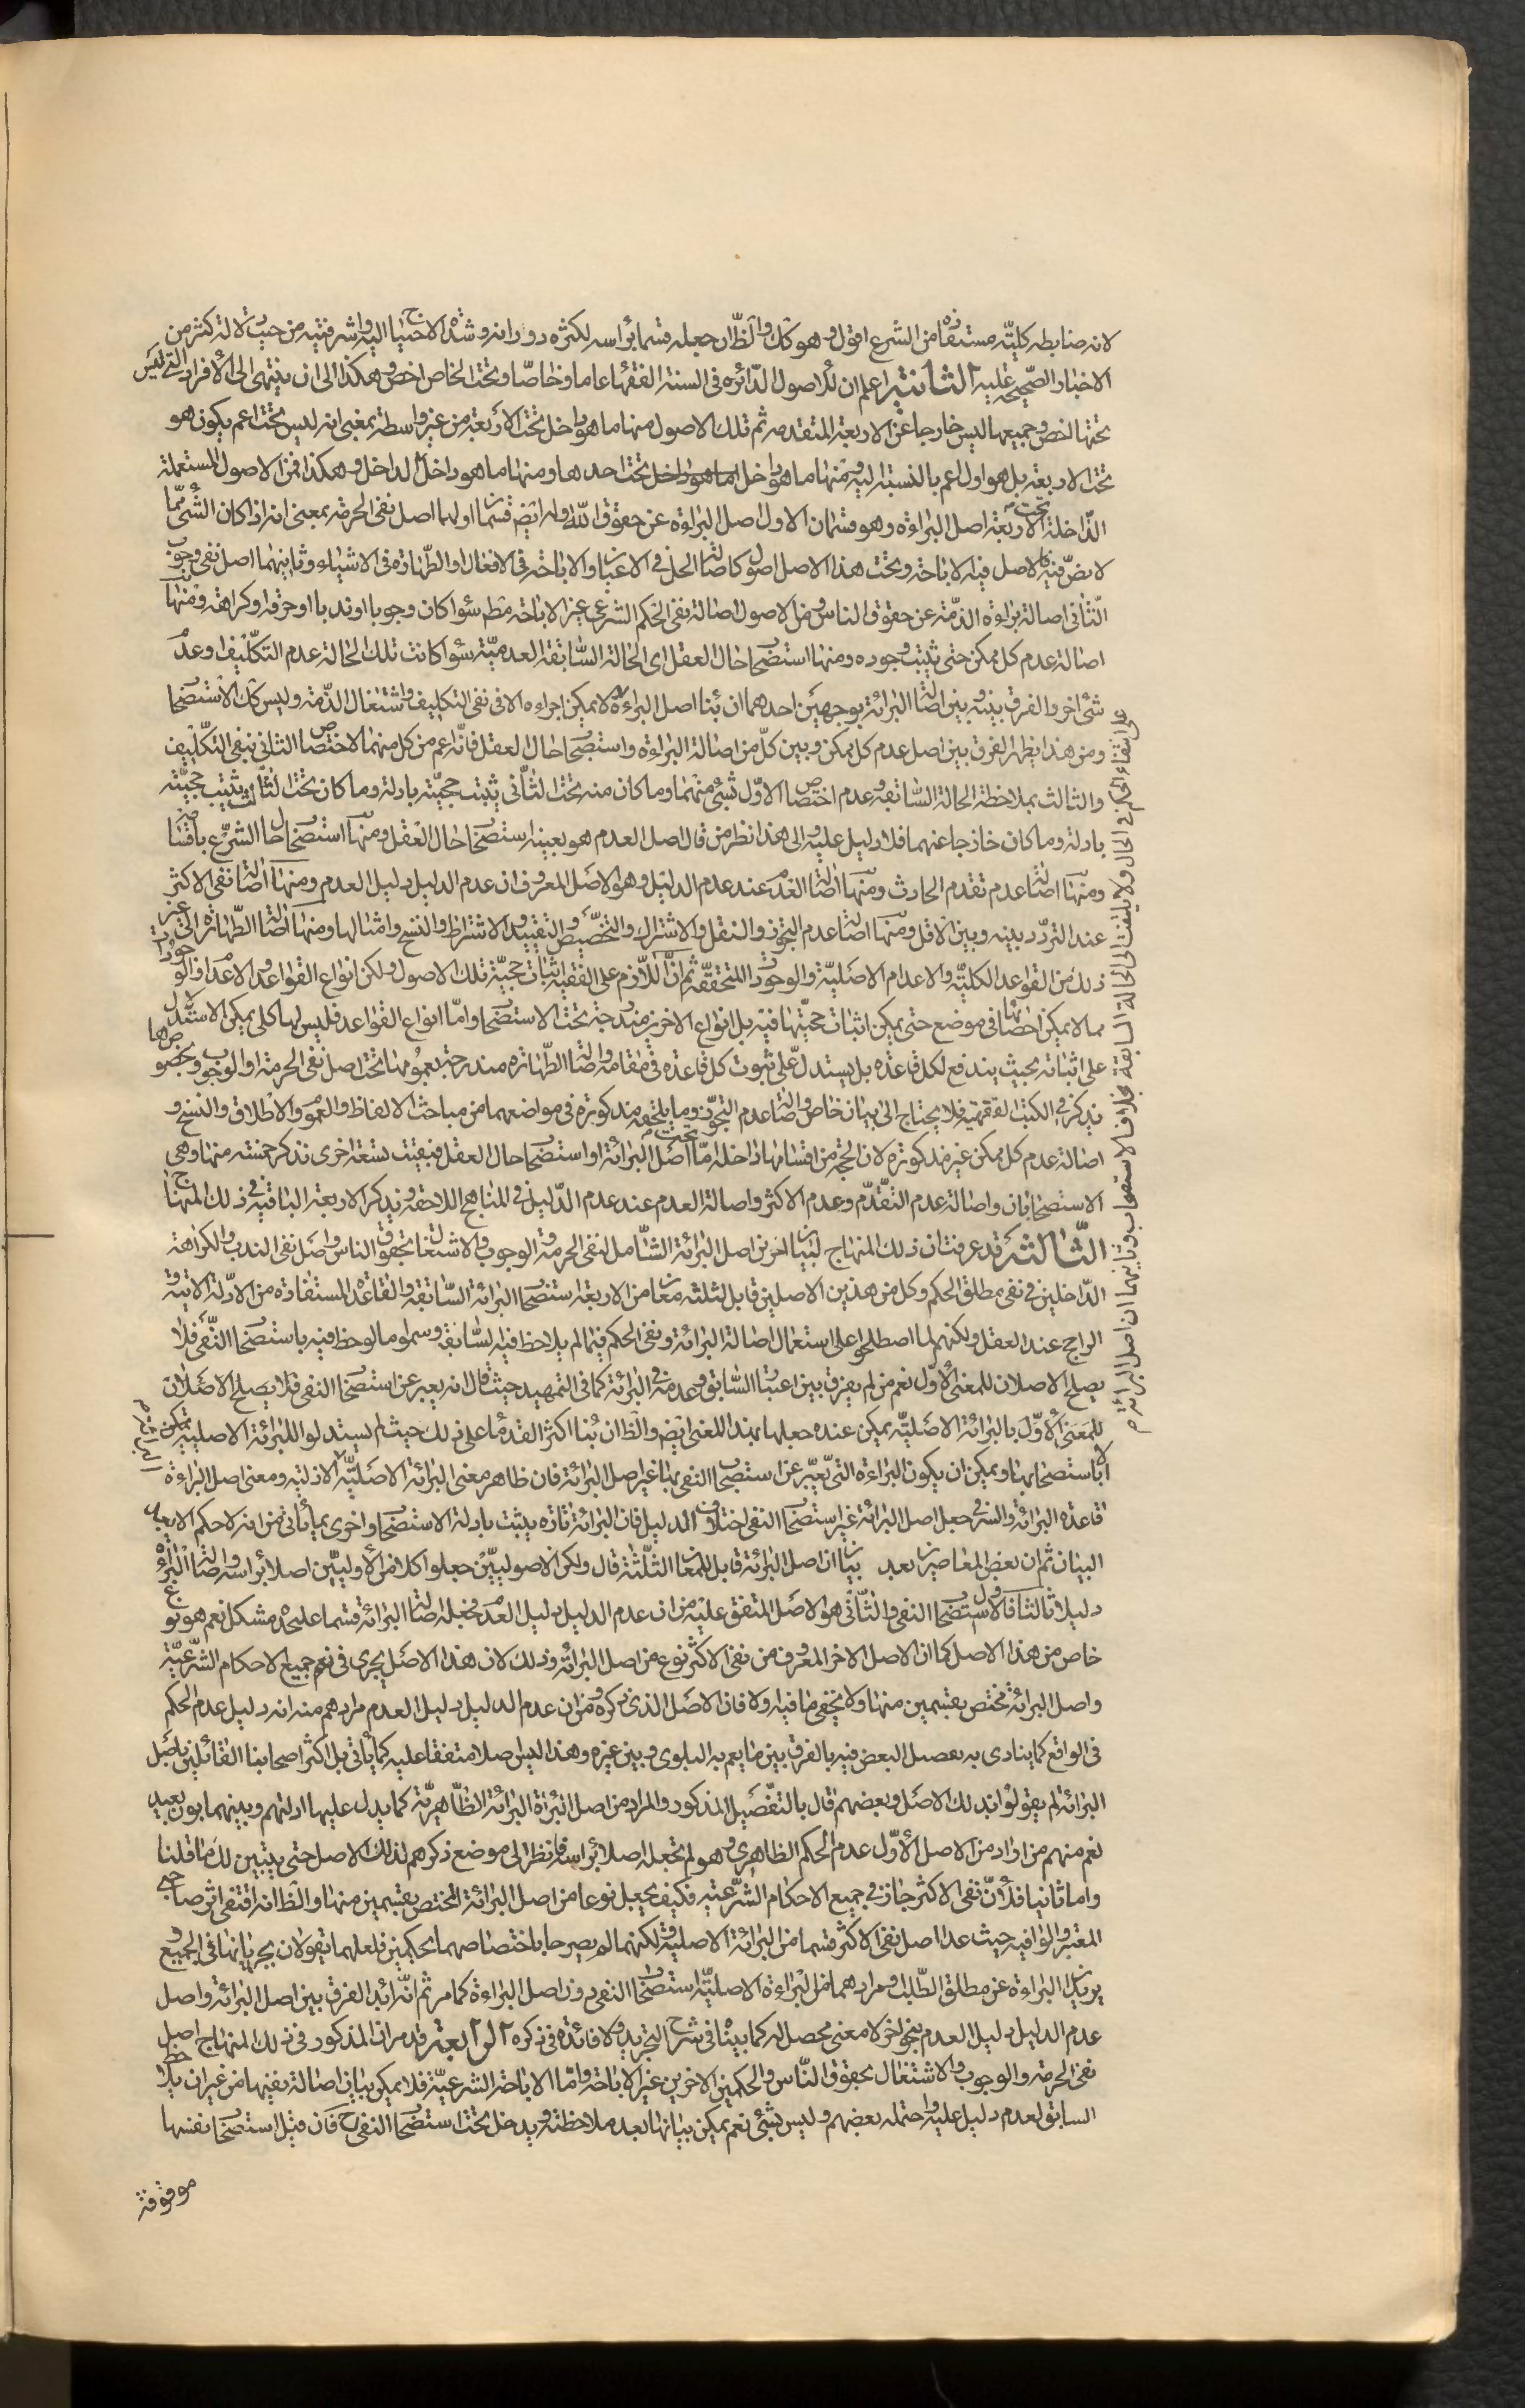 لانه ضابطه كليّته مستفادة من الشرع اقول وهو كك والظّ ان جعله قسما برأسه لكثره دورانه وشدة الاحتياج اليه واشرفيته من حيث دلالة كثير من
الاخبار الصّحيحة عليه الثانية اعلم ان للاصول الدّائره فى السنة الفقهاء عاما وخاصّا وتحت الخاص اخصّ وهكذا الى ان ينتهى الى الأفراد التى ليس
تحتها اخصّ وجميعها ليس خارجا عن الاربعة المتقدمه ثم تلك الاصول منها ما هو داخل تحت الأربعة من غير واسطة بمعنى انه ليس تحت اعم يكون هو
تحت الاربعة بل هو اول اعم بالنسبة اليه ومنها ما هو داخل تحت احدها ومنها ما هو داخل الداخل وهكذا فمن الاصول المستعملة
الدّاخلة تحت الاربعة اصل البراءة وهو قسمان الاول اصل البراءة عن حقوق اللّه وله ايضا قسمان اولهما اصل نفى الحرمة بمعنى انه اذا كان الشئ ممّا
لا نصّ فيه فالاصل فيه الاباحة وتحت هذا الاصل اصول كاصالة الحل فى الاعيان والاباحة فى الافعال والطّهارة فى الاشياء وثانيهما اصل نفى وجوب
الثّانى اصالة براءة الذمّة عن حقوق الناس ومن الاصول اصالة نفى الحكم الشرعى غير الاباحة مطم سواء كان وجوبا او ندبا او حرمة او كراهة ومنها
اصالة عدم كل ممكن حتى يثبت وجوده ومنها استصحاب حال العقل اى الحالة السّابقة العدميّة سواء كانت تلك الحالة عدم التكلّيف او عدم
شئ اخر والفرق بينه وبين اصالة البرائة بوجهين احدهما ان بناء اصل البراءة لا يمكن اجراءه الا فى نفى التكليف واشتغال الذّمة وليس كك الاستصحاب
ومن هذا يظهر الفرق بين اصل عدم كل ممكن وبين كلّ من اصالة البراءة واستصحاب حال العقل فانّه اعم من كل منهما لاختصاص الثانى بنفى التكلّيف
والثالث بملاحظة الحالة السّابقة وعدم اختصاص الاوّل بشئ منهما وما كان منه تحت الثّانى يثبت حجيّته بادلة وما كان تحت الثالث يثبت حجيّته
بادلة وما كان خارجا عنهما فلا دليل عليه والى هذا نظر من قال اصل العدم هو بعينه استصحاب حال العقل ومنها استصحاب حال الشرع باقسامه
ومنها اصالة عدم تقدم الحادث ومنها اصالة العدم عند عدم الدليل وهو الاصل المعروف ان عدم الدليل دليل العدم ومنها اصالة نفى الاكثر
عند التردّد بينه وبين الاقل ومنها اصالة عدم التجوّز والنقل والاشتراك والتخصيص والتقييد والاشتراط والنسخ وامثالها ومنها اصالة الطّهارة الى غير
ذلك من القواعد الكليّة والاعدام الاصليّة والوجودات المتحققّة ثم انّ اللازم على الفقيه اثبات حجيّة تلك الاصول ولكن انواع القواعد والاعدام والوجودات
مما لا يمكن احصائها فى موضع حتى يمكن اثبات حجيّتها فيه بل انواع الاخرين مندرجة تحت الاستصحاب وامّا انواع القواعد فليس لها كلى يمكن الاستدلال
على اثباته بحيث يندفع لكل قاعدة بل يستدلّ على ثبوت كل قاعدة فى مقامه واصالة الطّهارة مندرجة بعمومها تحت اصل نفى الحرمة او الوجوب وبخصوصها
يذكر فى الكتب الفقهيّة فلا يحتاج الى بيان خاص واصالة عدم التجوّز وما يلحقه مذكورة فى مواضعهما من مباحث الالفاظ والعموم والاطلاق والنسخ و
اصالة عدم كل ممكن غير مذكورة لان الحجّه من اقسامها داخلة امّا تحت اصل البرائة او استصحاب حال العقل فبقيت تسعة اخرى نذكر خمسة منها وهى
الاستصحابان واصالة عدم التقّدّم وعدم الاكثر واصالة العدم عند عدم الدّليل فى المناهج اللاحقة ونذكر الاربعة الباقية فى ذلك المنهاج
الثّالثة قد عرفت ان ذلك المنهاج لبيان امرين اصل البرائة الشّامل لنفى الحرمة والوجوب والاشتغال بحقوق الناس واصل نفى الندب والكراهة
الدّاخلين فى نفى مطلق الحكم وكل من هذين الاصلين قابل لثلثة معان من الاربعة استصحاب البرائة السّابقة والقاعدة المستفادة من الادّلة الاتية و
الراجح عند العقل ولكنهم لما اصطلحوا على استعمال اصالة البرائة ونفى الحكم فيما لم يلاحظ فيه السّابقة وسموا ما لوحظ فيه باستصحاب النّفى فلا
يصلح الاصلان للمعنى الأوّل نعم من لم يفرق بين اعتبار السّابق وعدمه فى البرائة كما فى التمهيد حيث قال انه يعبر عن استصحاب النفى فلا يصلح الاصلان
للمعنى الأوّل بالبرائة الاصليّة يمكن عنده جعلها بهذا المعنى ايضم والظ ان بناء اكثر القدماء على ذلك حيث لم يستدلوا للبرائة الاصلية
الا باستصحابها ويمكن ان يكون البراءة التى يعبّر عن استصحاب النفى بها غير اصل البرائة فان ظاهر معنى البرائة الاصليّة الازليّة ومعنى اصل البراءة
قاعدة البرائة والسّر فى جعل اصل البرائة غير استصحاب النفى اختلاف الدليل فان البرائة تارة يثبت بادلة الاستصحاب واخرى بما يأتى من انه لا حكم الا بعد
البيان ثم ان بعض المعاصرين بعد بيان ان اصل البرائة قابل للمعان الثلّثة قال ولكن الاصوليّين جعلوا كلا من الأوليّين اصلا برأسه واصالة البراءة
دليلا ثالثا فالاول استصحاب النفى والثّانى هو الاصل المتفق عليه من ان عدم الدليل دليل العدم فجعله اصالة البرائة قسما عليحدة مشكل نعم هو نوع
خاص من هذا الاصل كما ان الاصل الاخر المعروف من نفى الاكثر نوع من اصل البرائة وذلك لان هذا الاصل يجرى فى نفى جميع الاحكام الشّرعيّة
واصل البرائة مختص بقسمين منها ولا يخفى ما فيه اولا فان الاصل الذى ذكروه من ان عدم الدليل دليل العدم مرادهم منه انه دليل عدم الحكم
فى الواقع كما ينادى به تفصيل البعض فيه بالفرق بين ما يعم به البلوى وبين غيره وهذا ليس اصلا متفقا عليه كما يأتى بل اكثر اصحابنا القائلين باصل
البرائة لم يقولوا بذلك الاصل وبعضهم قال بالتفّصيل المذكور والمراد من اصل البراءة البرائة الظّاهريّة كما يدل عليها ادلتهم وبينهما بون بعيد
نعم منهم من اراد من الاصل الأوّل عدم الحكم الظاهرى وهو لم يجعله اصلا برأسه فانظر الى موضع ذكرهم لذلك الاصل حتى يتبين لك ما قلنا
واما ثانيا فلأنّ نفى الاكثر جاز فى جميع الاحكام الشّرعيّه فكيف يجعل نوعا من اصل البرائة المختص بقسمين منها والظ انه اقتفى اثر صاحبى
المعتبر والوافيه حيث عدا اصل نفى الاكثر قسما من البرائة الاصلية ولكنهما لم يصرحا باختصاصهما بحكمين فلعلهما يقولان بجريانها فى الجميع و
يريدان البراءة عن مطلق الطّلب ومرادهما من البراءة الاصليّة استصحاب النفى دون اصل البراءة كما مر ثم انّه ابدا الفرق بين اصل البرائة واصل
عدم الدليل دليل العدم بنحو اخر لا معنى محصل له كما بيناه فى شرح التجريد ولا فائدة فى ذكره الرابعة قد مر ان المذكور فى ذلك المنهاج اصل
نفى الحرمة والوجوب والاشتغال بحقوق النّاس والحكمين الاخرين غير الاباحة وامّا الاباحة الشرعيّة فلا يمكن بيان اصالة نفيها من غير ان يلاحظ
السابق لعدم دليل عليه واحتمله بعضهم وليس بشئ نعم يمكن بيانها بعد ملاحظته ويدخل تحت استصحاب النفى ح فان قيل استصحاب نفسها
موقوفة
وابقاء الحكم فى الحال ولا يلتفت الى الحالة السابقة بخلاف الاستصحاب وثانيهما ان اصل البرائة